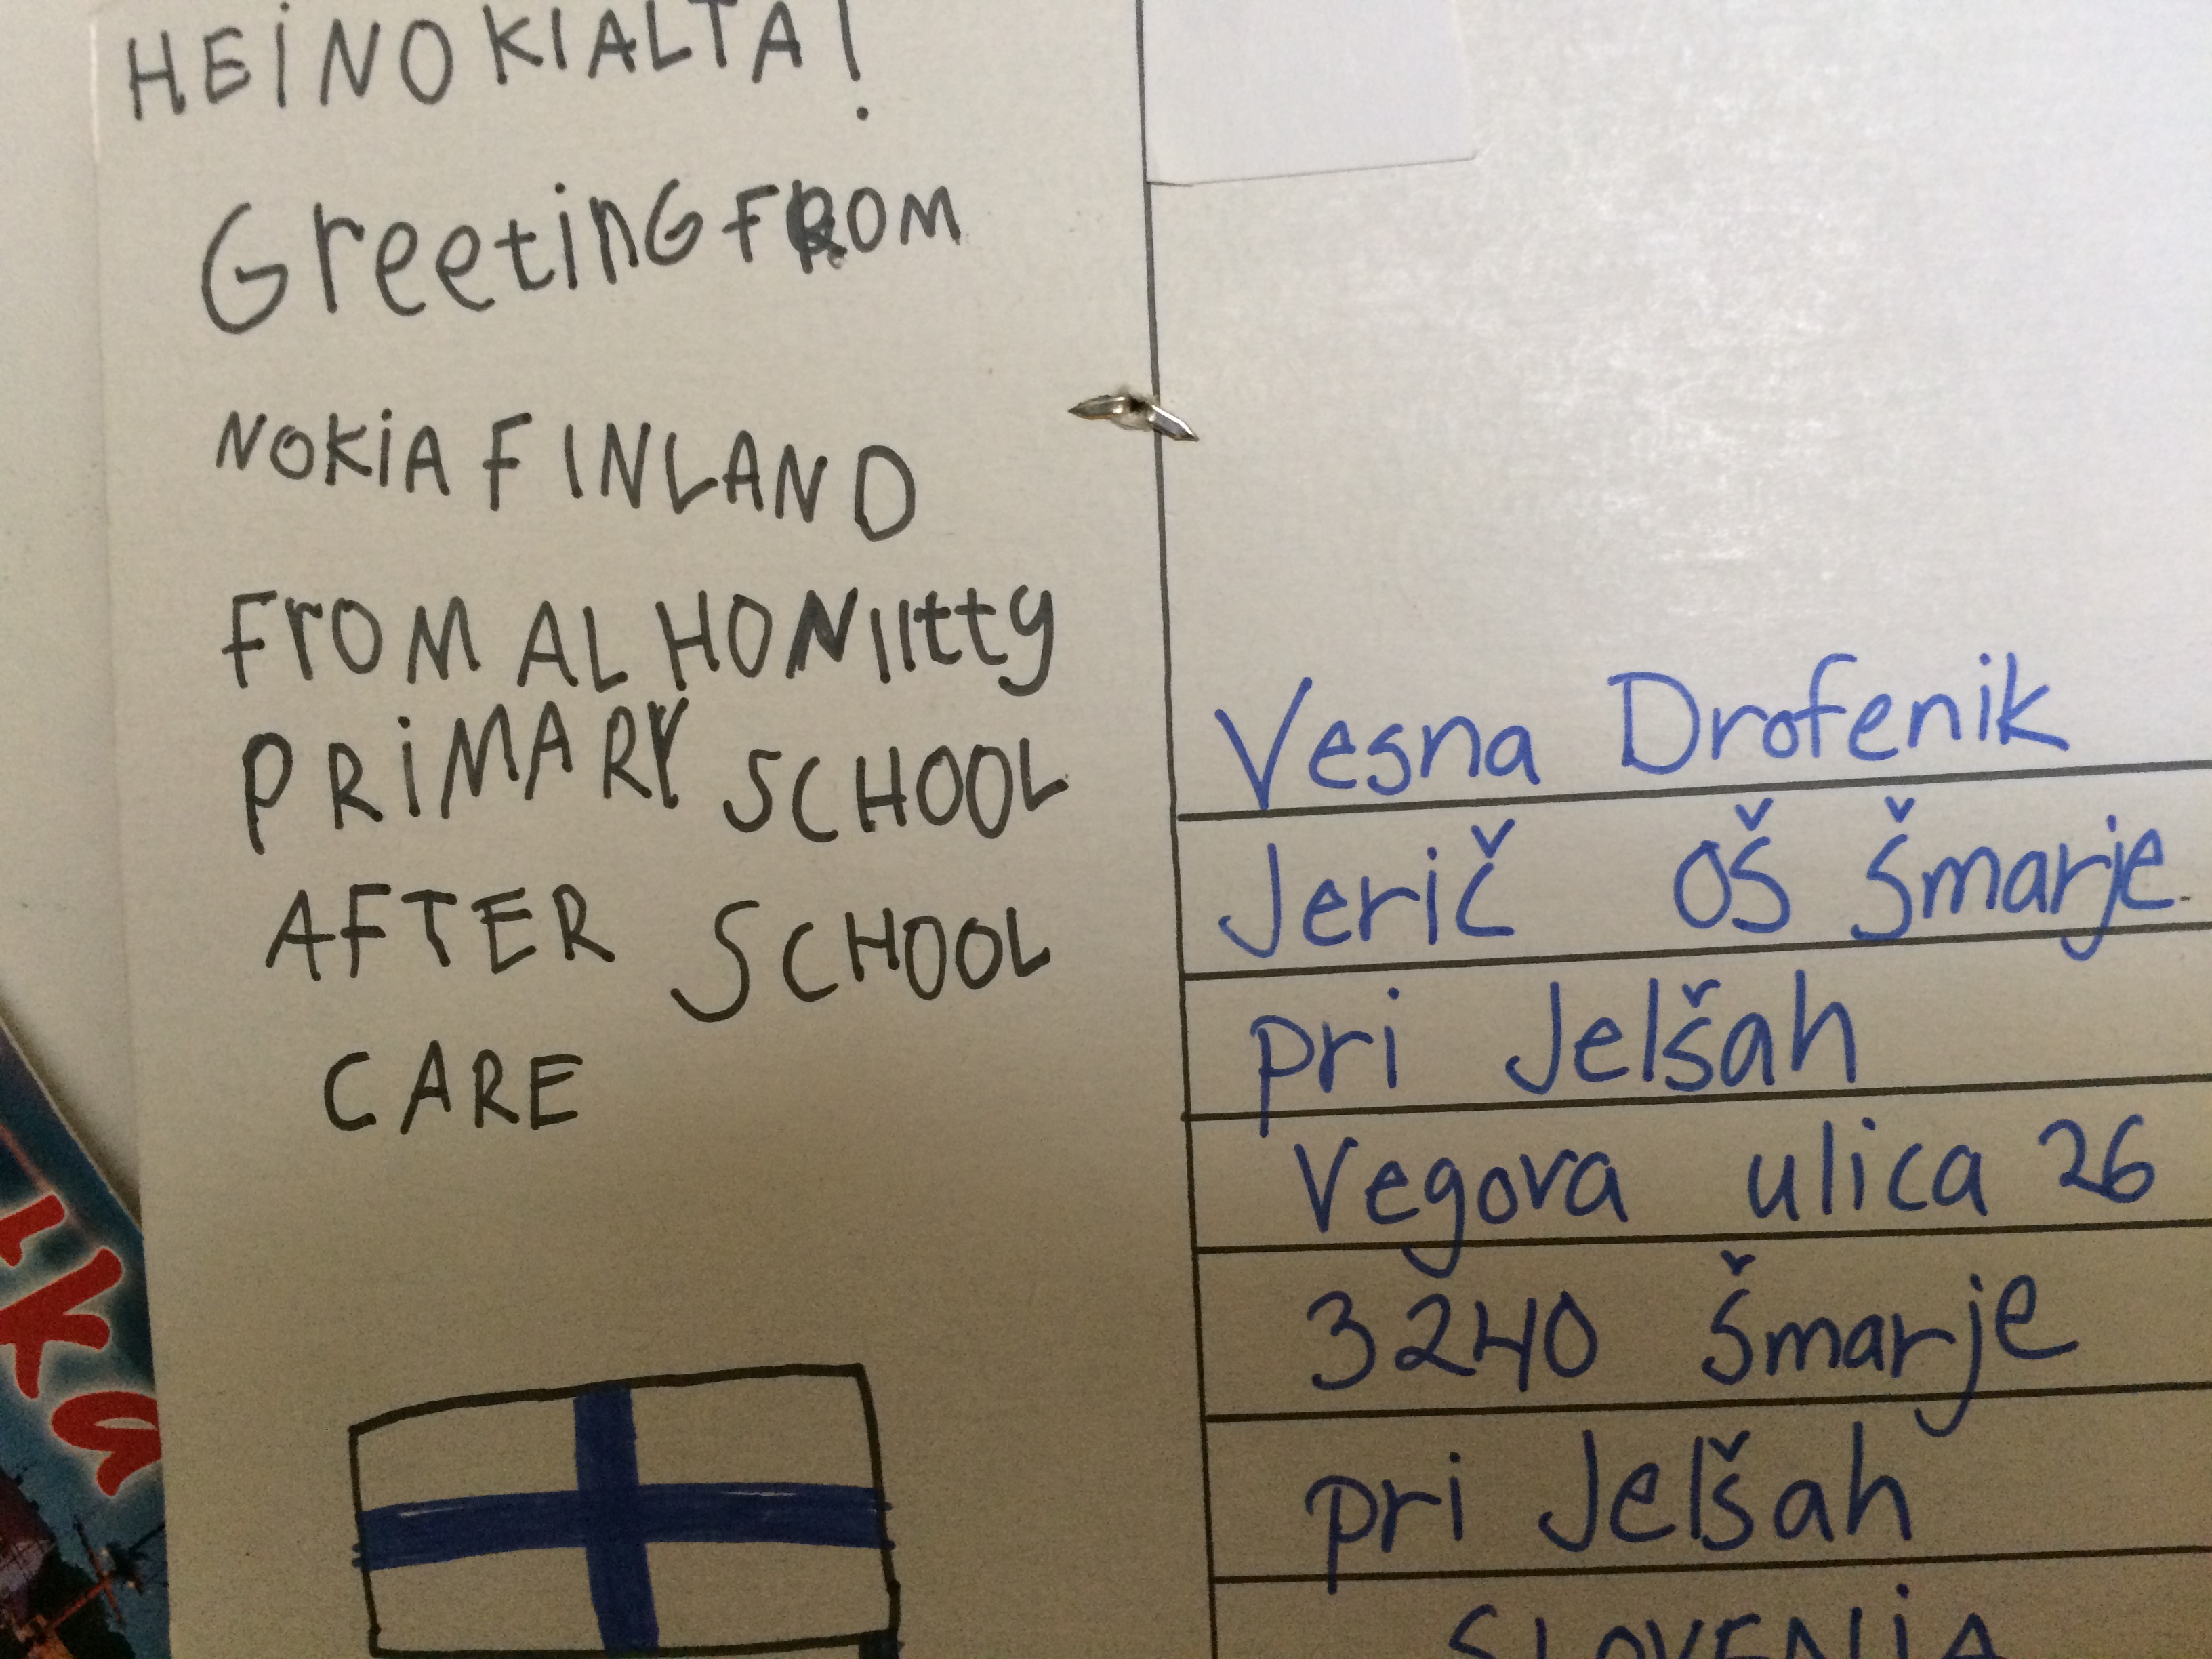 HEINOKIALTA!
GreetinG FROM
NOKiA FINLAND
FrOM ALHONiitty
PRiMARY SCHOOL
AFTER SCHOOL
CARE
Vesna Drofenik
Jerič OŠ Šmarje
pri Jelšah
Vegova ulica 26
3240 Šmarje
pri Jelšah
SLOVENiA